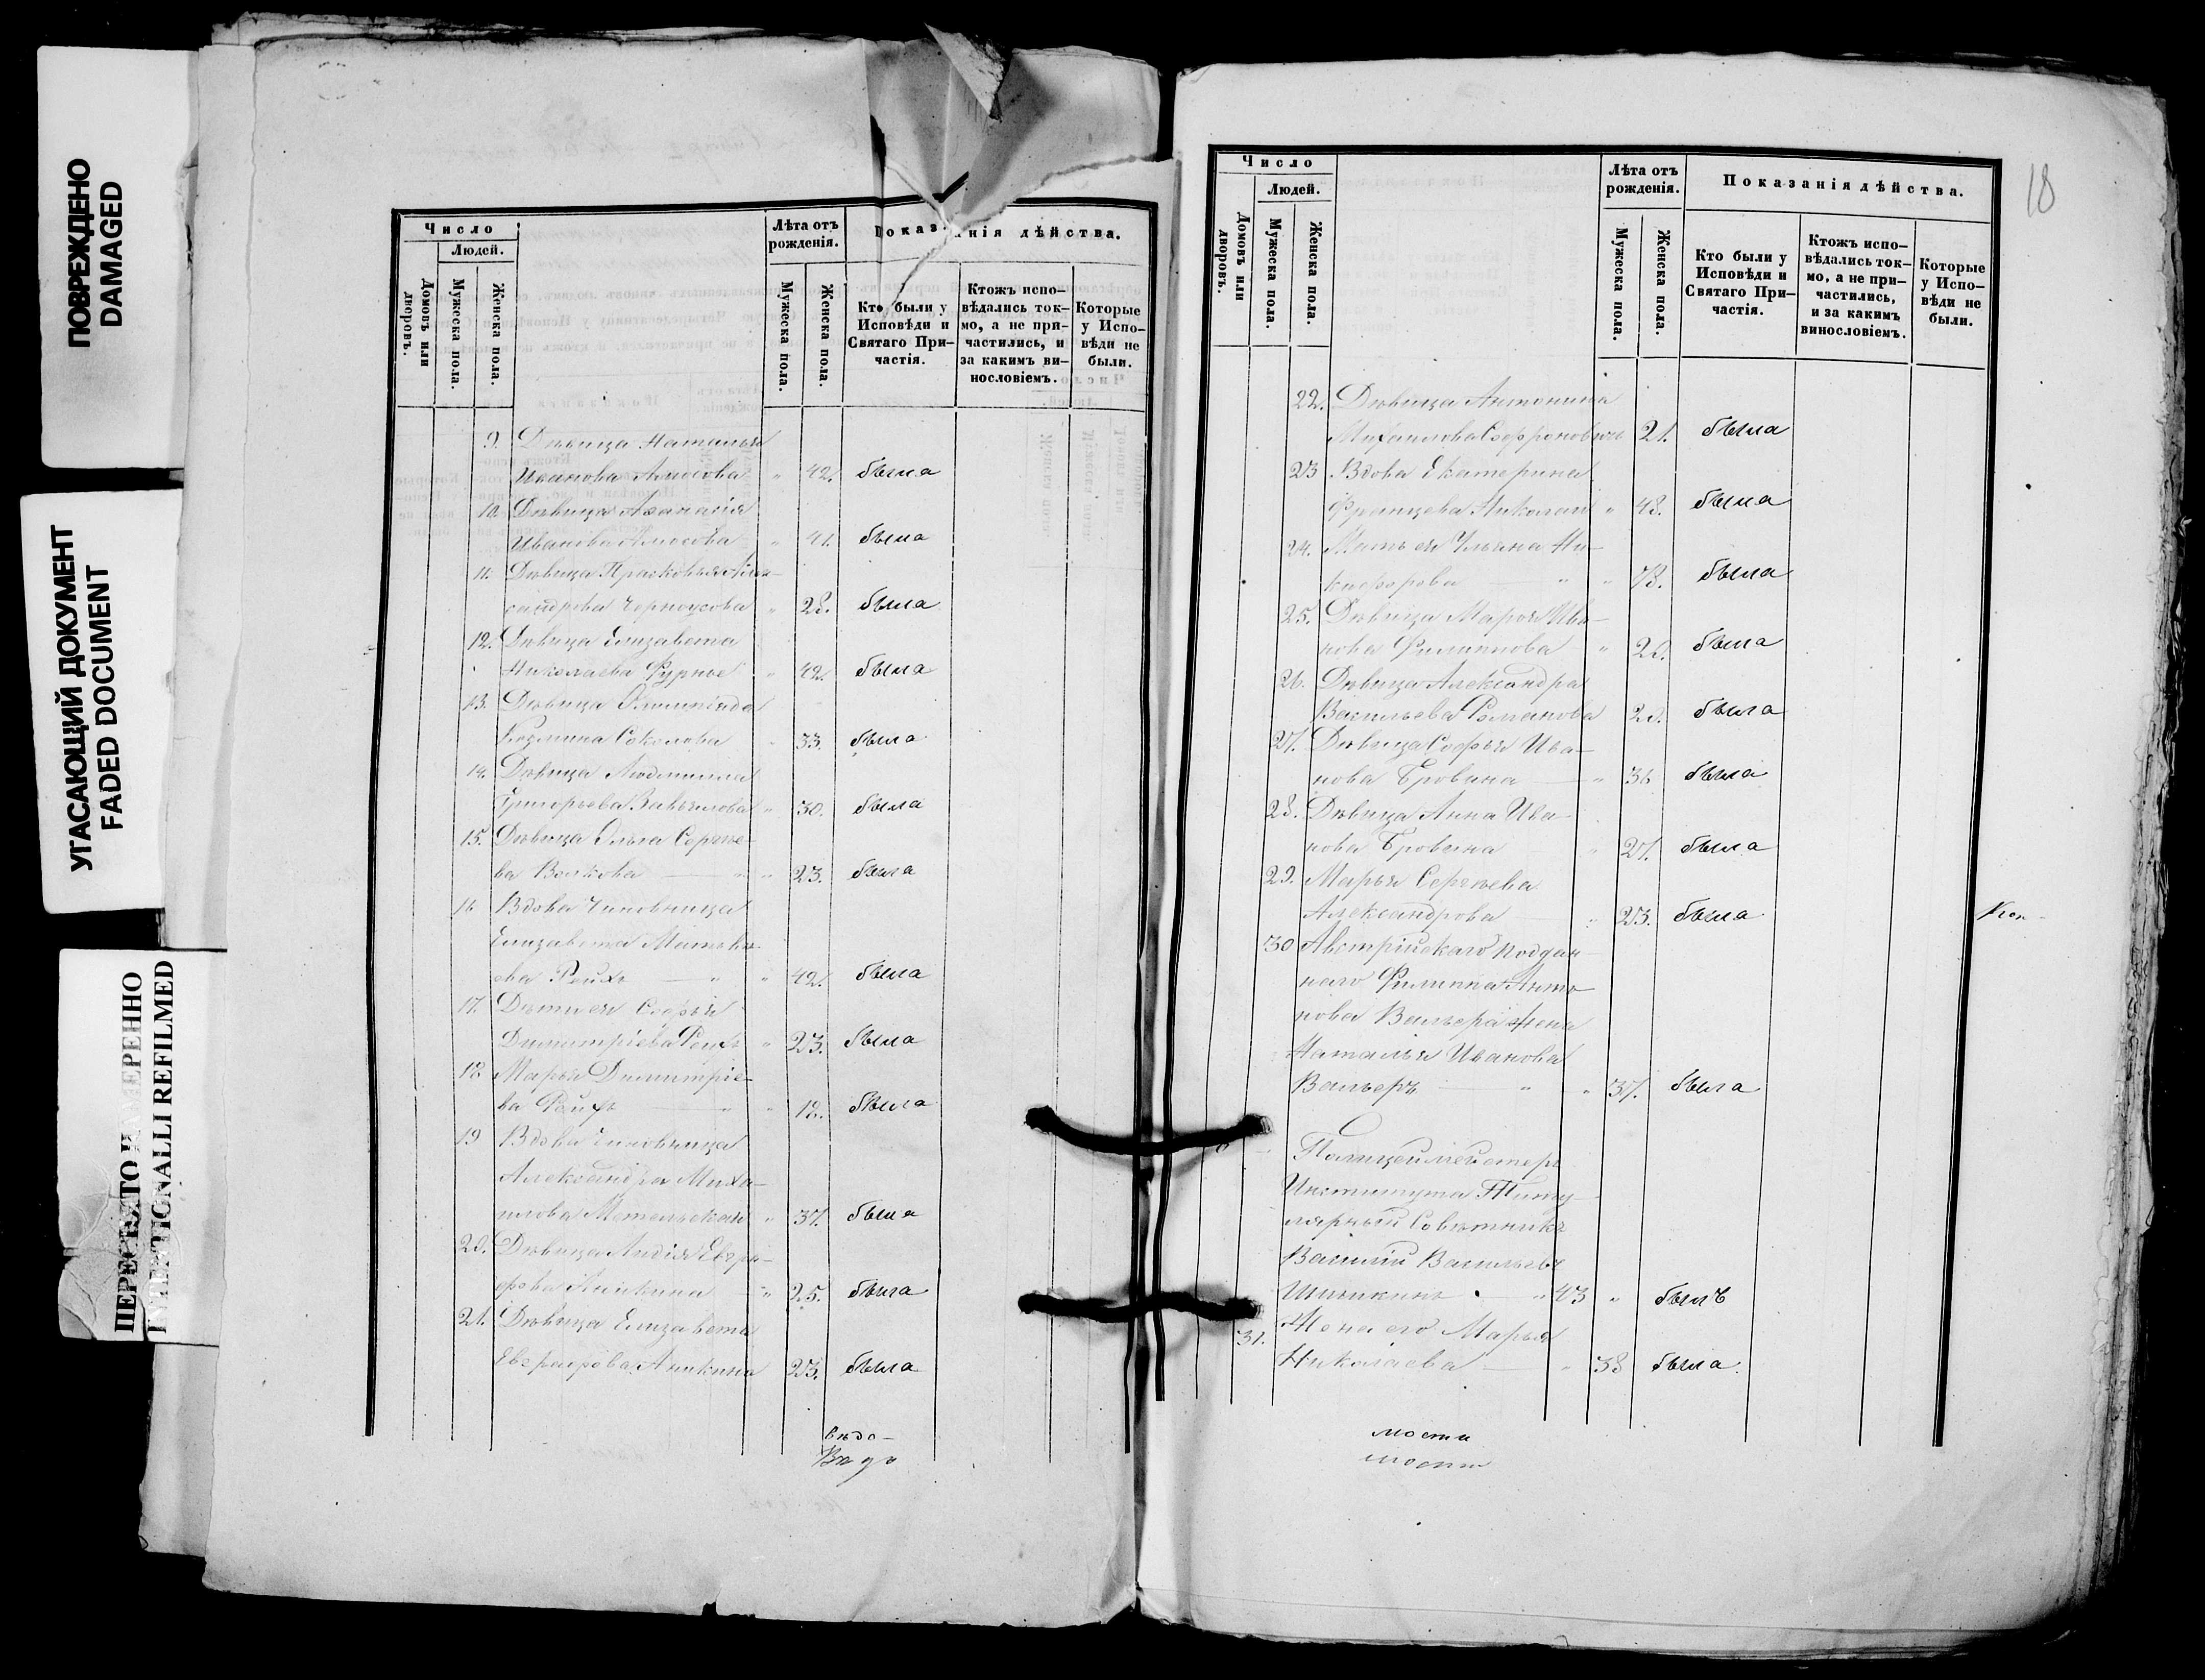 ПОВРЕЖДЕНО
DAMAGED
УГАСАЮЩИЙ ДОКУМЕНТ
FADED DOCUMENT
ПЕРЕСНЯТО НАМЕРЕННО
INTENTIONALLI REFILMED
Число
Людей.
Домовъ или дворовъ.
Мужеска пола.
Женска пола.
Лѣта отъ рожденія.
Мужеска пола.
Женска пола.
Показанія дѣйства.
Кто были у Исповѣди и Святаго Причастія.
Ктожъ исповѣдались токмо, а не причастились, и за какимъ винословіемъ.
Которые у Исповѣди не были.
9. Дѣвица Наталья
Иванова Амосова " 42. была
10. Дѣвица Аѳанасія
Иванова Амосова " 41. была
11. Дѣвица Прасковья Алек-
сандрова Черноусова " 28. была
12. Дѣвица Елизавета
Николаева Фурнье " 42. была
13. Дѣвица Олимпіада
Козмина Соколова " 33. была
14. Дѣвица Людмилла
Григорьева " 30. была
15. Дѣвица Ольга Сергѣе-
ва Волкова — " " 23. была
16 Вдова Чиновница
Елизавета Матвѣ-
ева Рейхъ — " " 42. была
17. Дѣти ея Софья
Димитріева Рейхъ " 23. была
18 Марья Димитріе-
ва Рейхъ — " " 18. была
19 Вдова Чиновница
Александра Миха-
илова " 37. была
20. Дѣвица Лидія Евгра-
фова Аникина — " 25. была
21. Дѣвица Елизавета
Евграфова Аникина 23. была
вѣдо-
Вѣдо
18
Число
Людей.
Домовъ или дворовъ.
Мужеска пола.
Женска пола.
Лѣта отъ рожденія.
Мужеска пола.
Женска пола.
Показанія дѣйства.
Кто были у Исповѣди и Святаго Причастія.
Ктожъ исповѣдались токмо, а не причастились, и за какимъ винословіемъ.
Которые у Исповѣди не были.
22. Дѣвица Антонина
Михаилова 21. была
23 Вдова Екатерина
Францева " 48. была
24. Мать ея Ульяна Ни-
кифорова — " " 78. была
25. Дѣвица Марья Ива-
нова Филиппова " 20. была
26. Дѣвица Александра
Васильева Романова 20. была
27. Дѣвица Софья Ива-
нова Бровина — " 36 была
28. Дѣвица Анна Ива-
нова Бровина " 27. была
29. Марья Сергѣева
Александрова — " 23. была
Кон-
30 Австрійскаго поддан-
наго Филиппа Анто-
нова Вальера жена
Наталья Иванова
Вальеръ — " " 37. была
Полицеймейстеръ
Института Титу-
лярный Совѣтникъ
Василій Васильевъ
Шишкинъ — " 43 " былъ
31. Жена его Марья
Николаева — " 38 была.
мости
мости